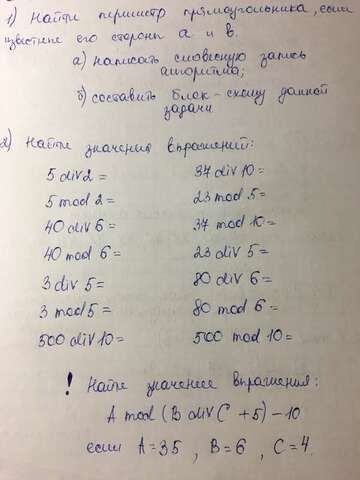 1) Найти периметр прямоугольника, если
известны его стороны a и b.
а) написать словесную запись
алгоритма;
б) составить блок-схему данной
задачи
2) Найти значения выражений:
5 div 2 = 37 div 10 =
5 mod 2 = 23 mod 5 =
40 div 6 = 37 mod 10 =
40 mod 6 = 23 div 5 =
3 div 5 = 80 div 6 =
3 mod 5 = 80 mod 6 =
500 div 10 = 500 mod 10 =
! Найти значение выражения:
A mod (B div C + 5) - 10
если A = 35, B = 6, C = 4.